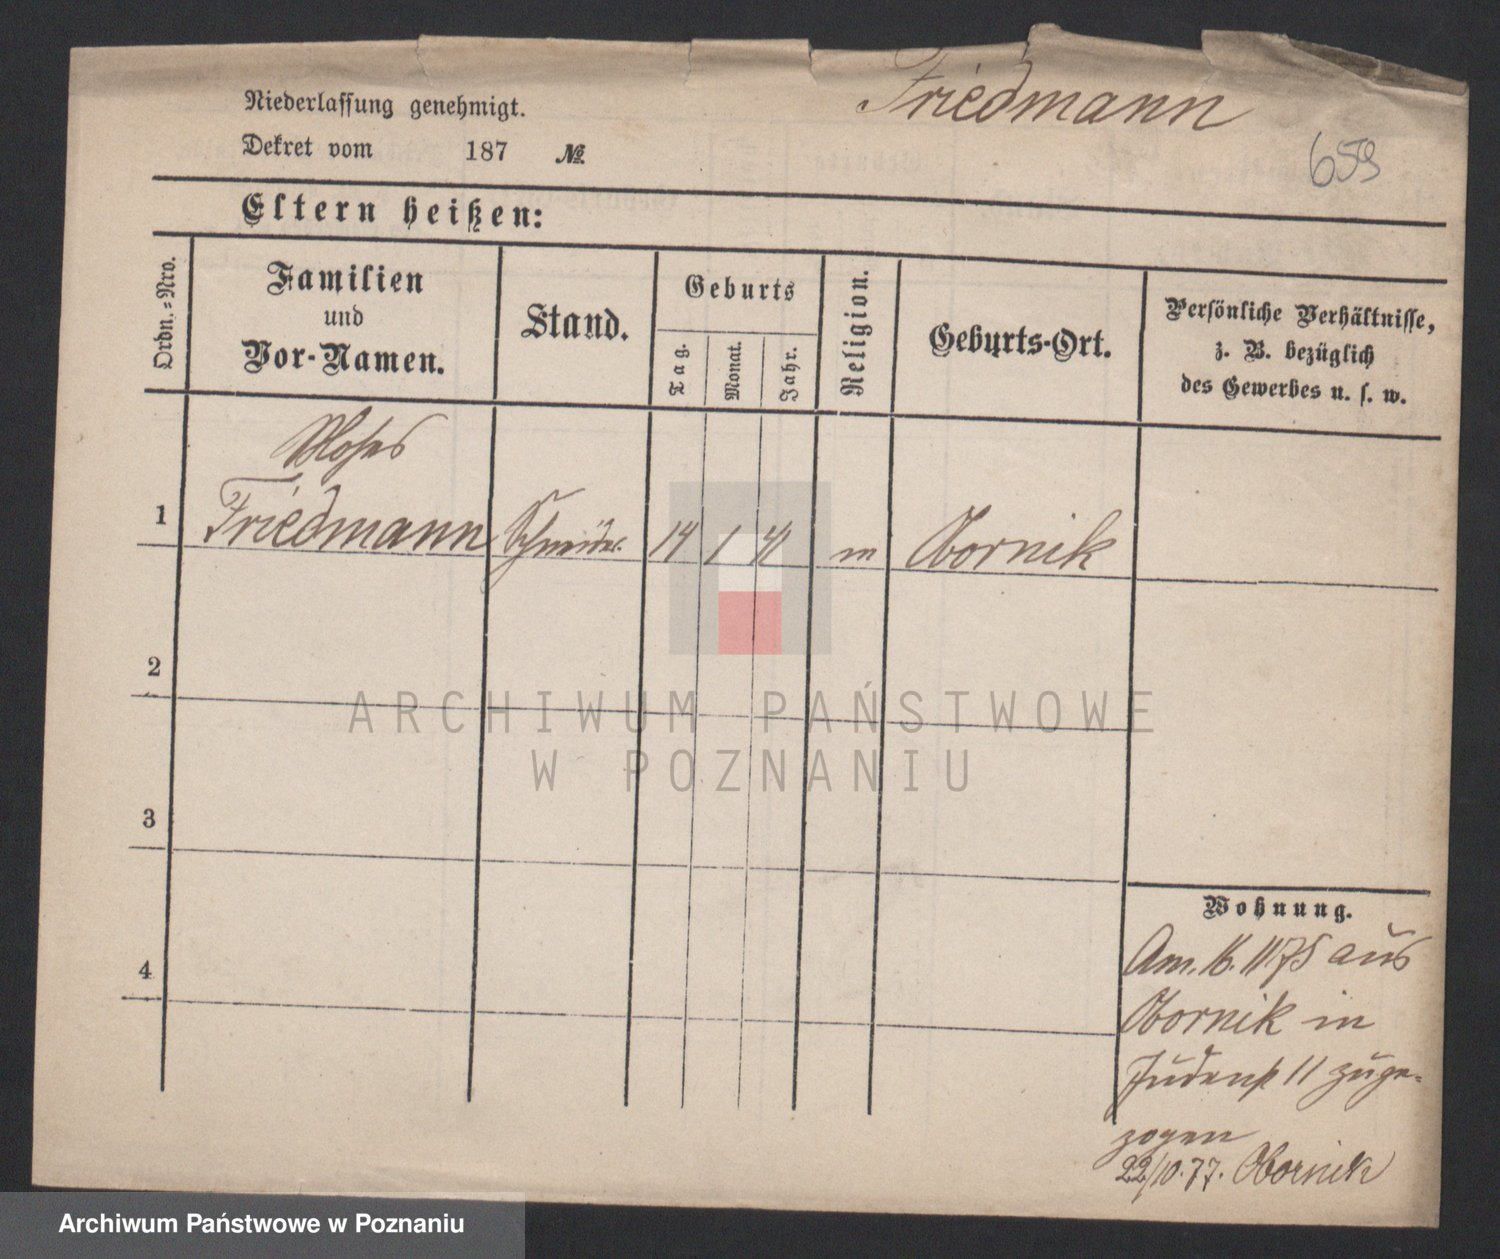 Friedmann
659
Niederlassung genehmigt.
Dekret vom 187 №
Eltern heißen:
Ordn.-Nro.
Familien
und
Vor-Namen.
Stand.
Geburts
Tag.
Monat.
Jahr.
Religion.
Geburts-Ort.
Persönliche Verhältnisse,
z. B. bezüglich
des Gewerbes u. s. w.
Moses
1 Friedmann Schneider 14 1 m Obornik
2
3
4
ARCHIWUM PAŃSTWOWE
W POZNANIU
Wohnung.
Am. 16. 11 75 aus
Obornik in
Judenstr 11 zuge-
zogen
22/10.77. Obornik
Archiwum Państwowe w Poznaniu